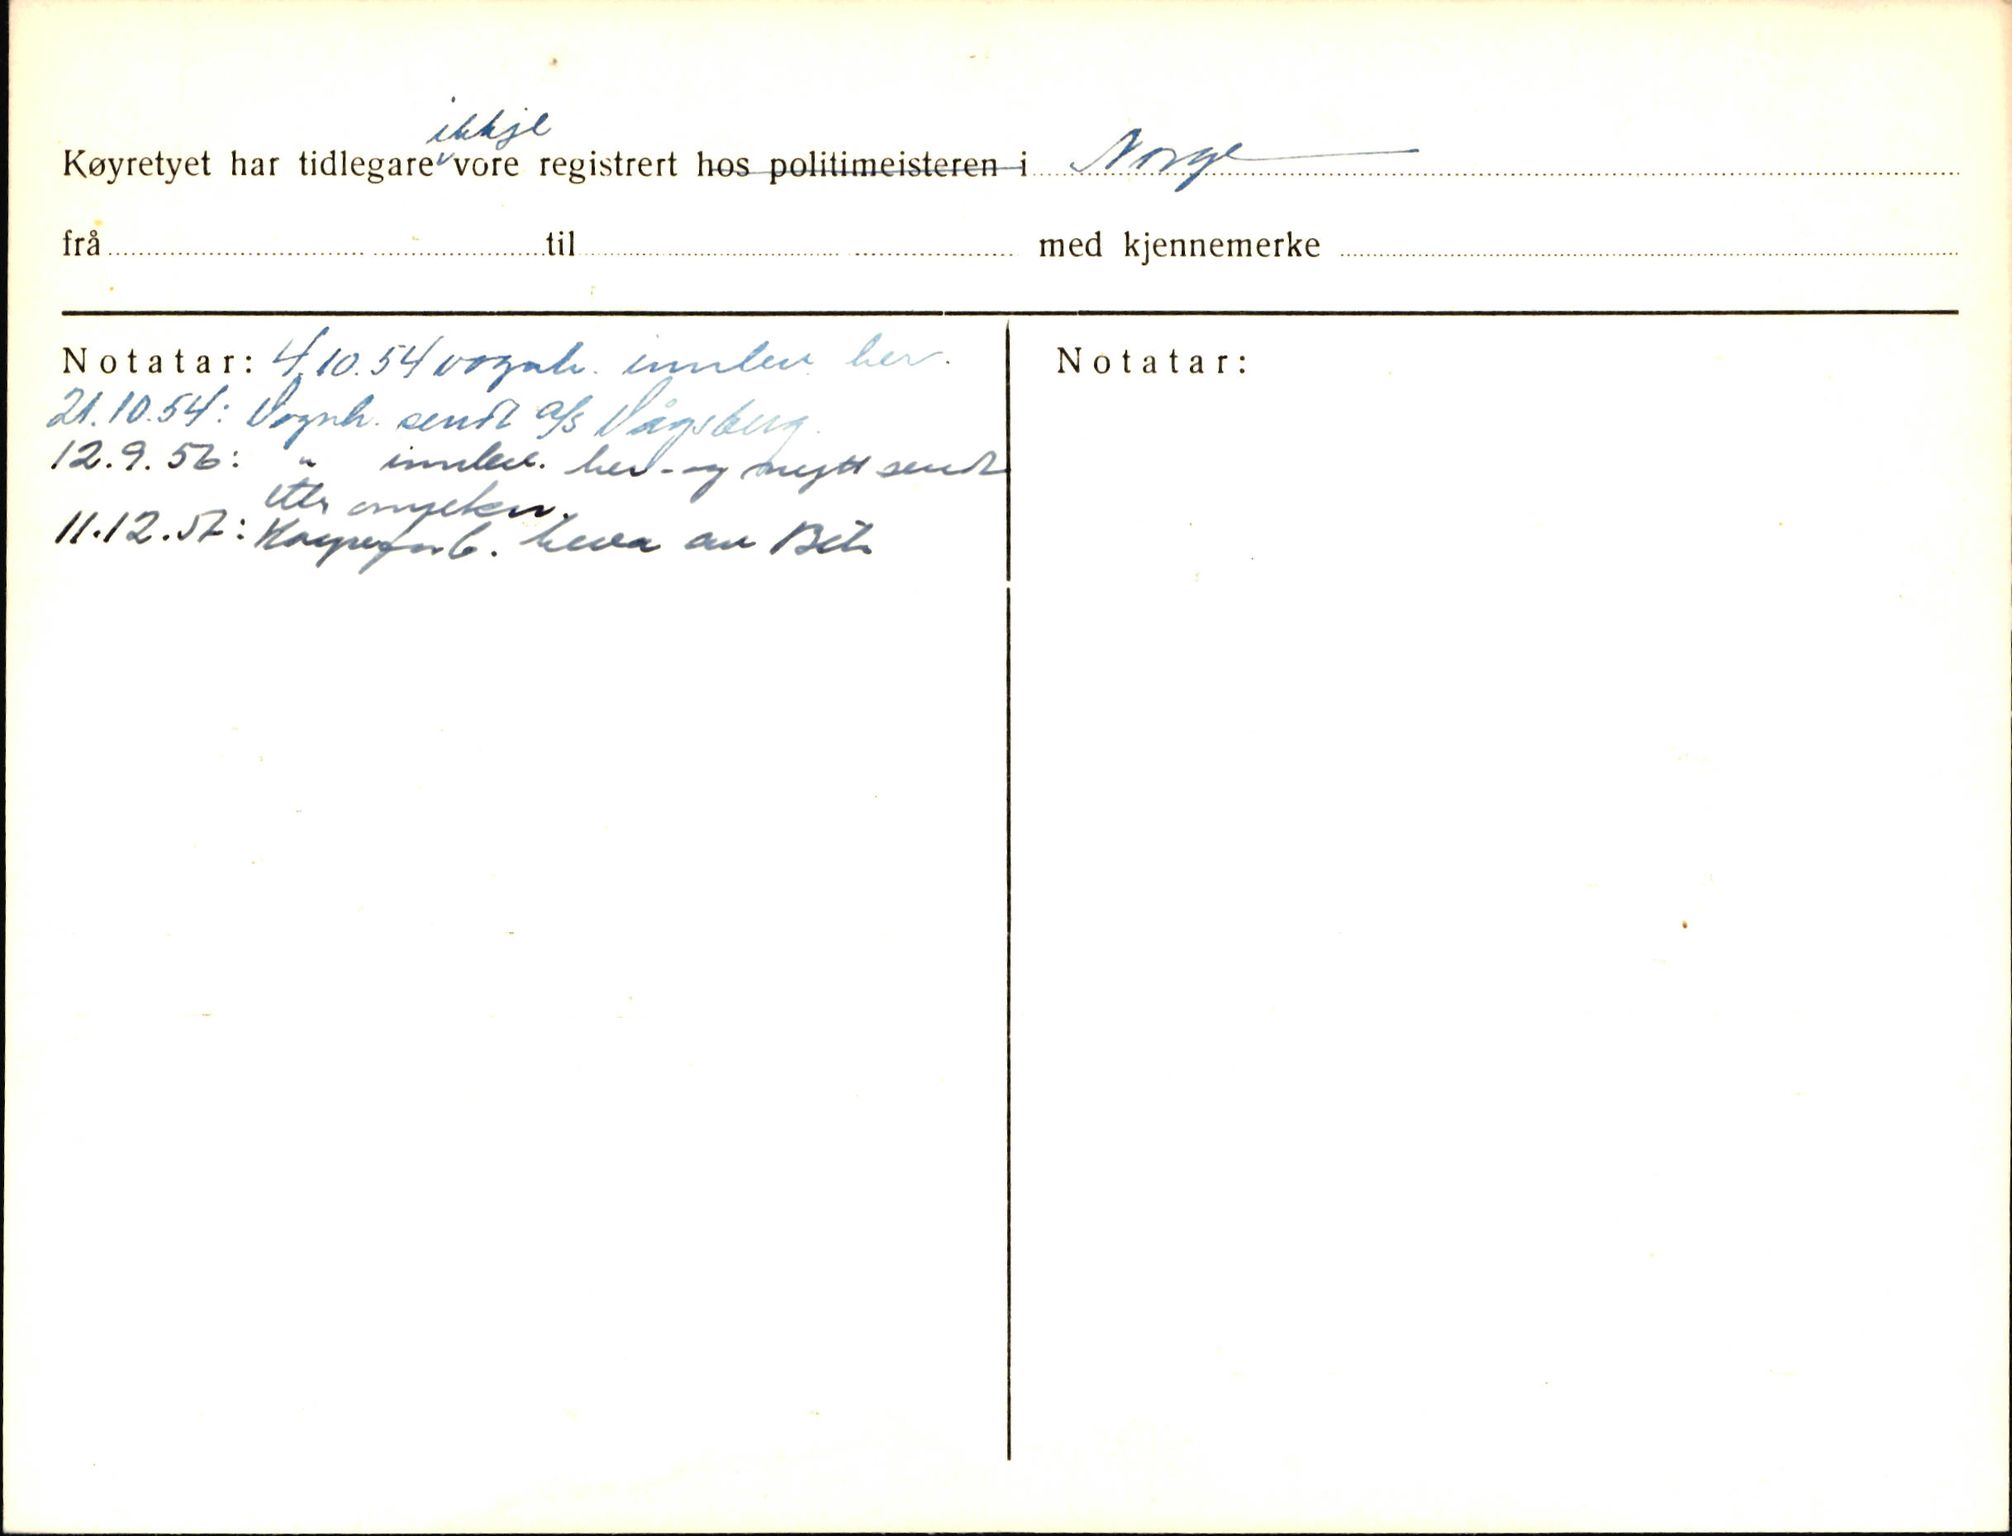 ikkje
Køyretyet har tidlegare vore registrert hos politimeisteren i Norge
frå til med kjennemerke
Notatar: 4.10.54 vognk. innlev. her.
21.10.54: Vognk. sendt a/s Vågsberg.
12.9.56: " innlev. her - og nytt sendt
etter
11.12.57: heva av
Notatar: